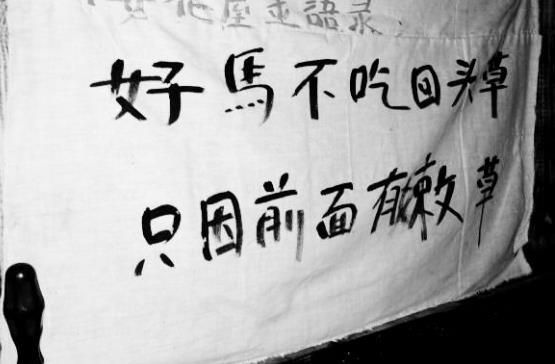 語录
好馬不吃回头草
只因前面有嫩草